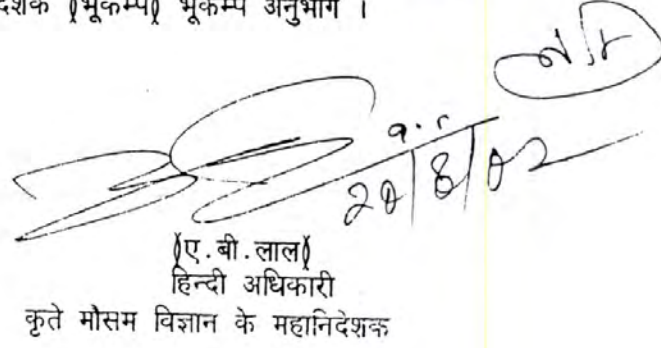 (भूकम्प) भूकम्प अनुभाग ।
20/8/02
(ए.बी.लाल)
हिन्दी अधिकारी
कृते मौसम विज्ञान के महानिदेशक